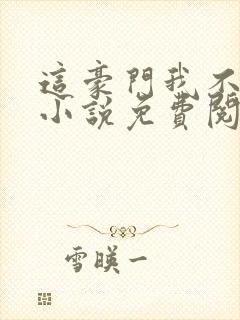 這豪門我不
小說免費閱
雪暎一